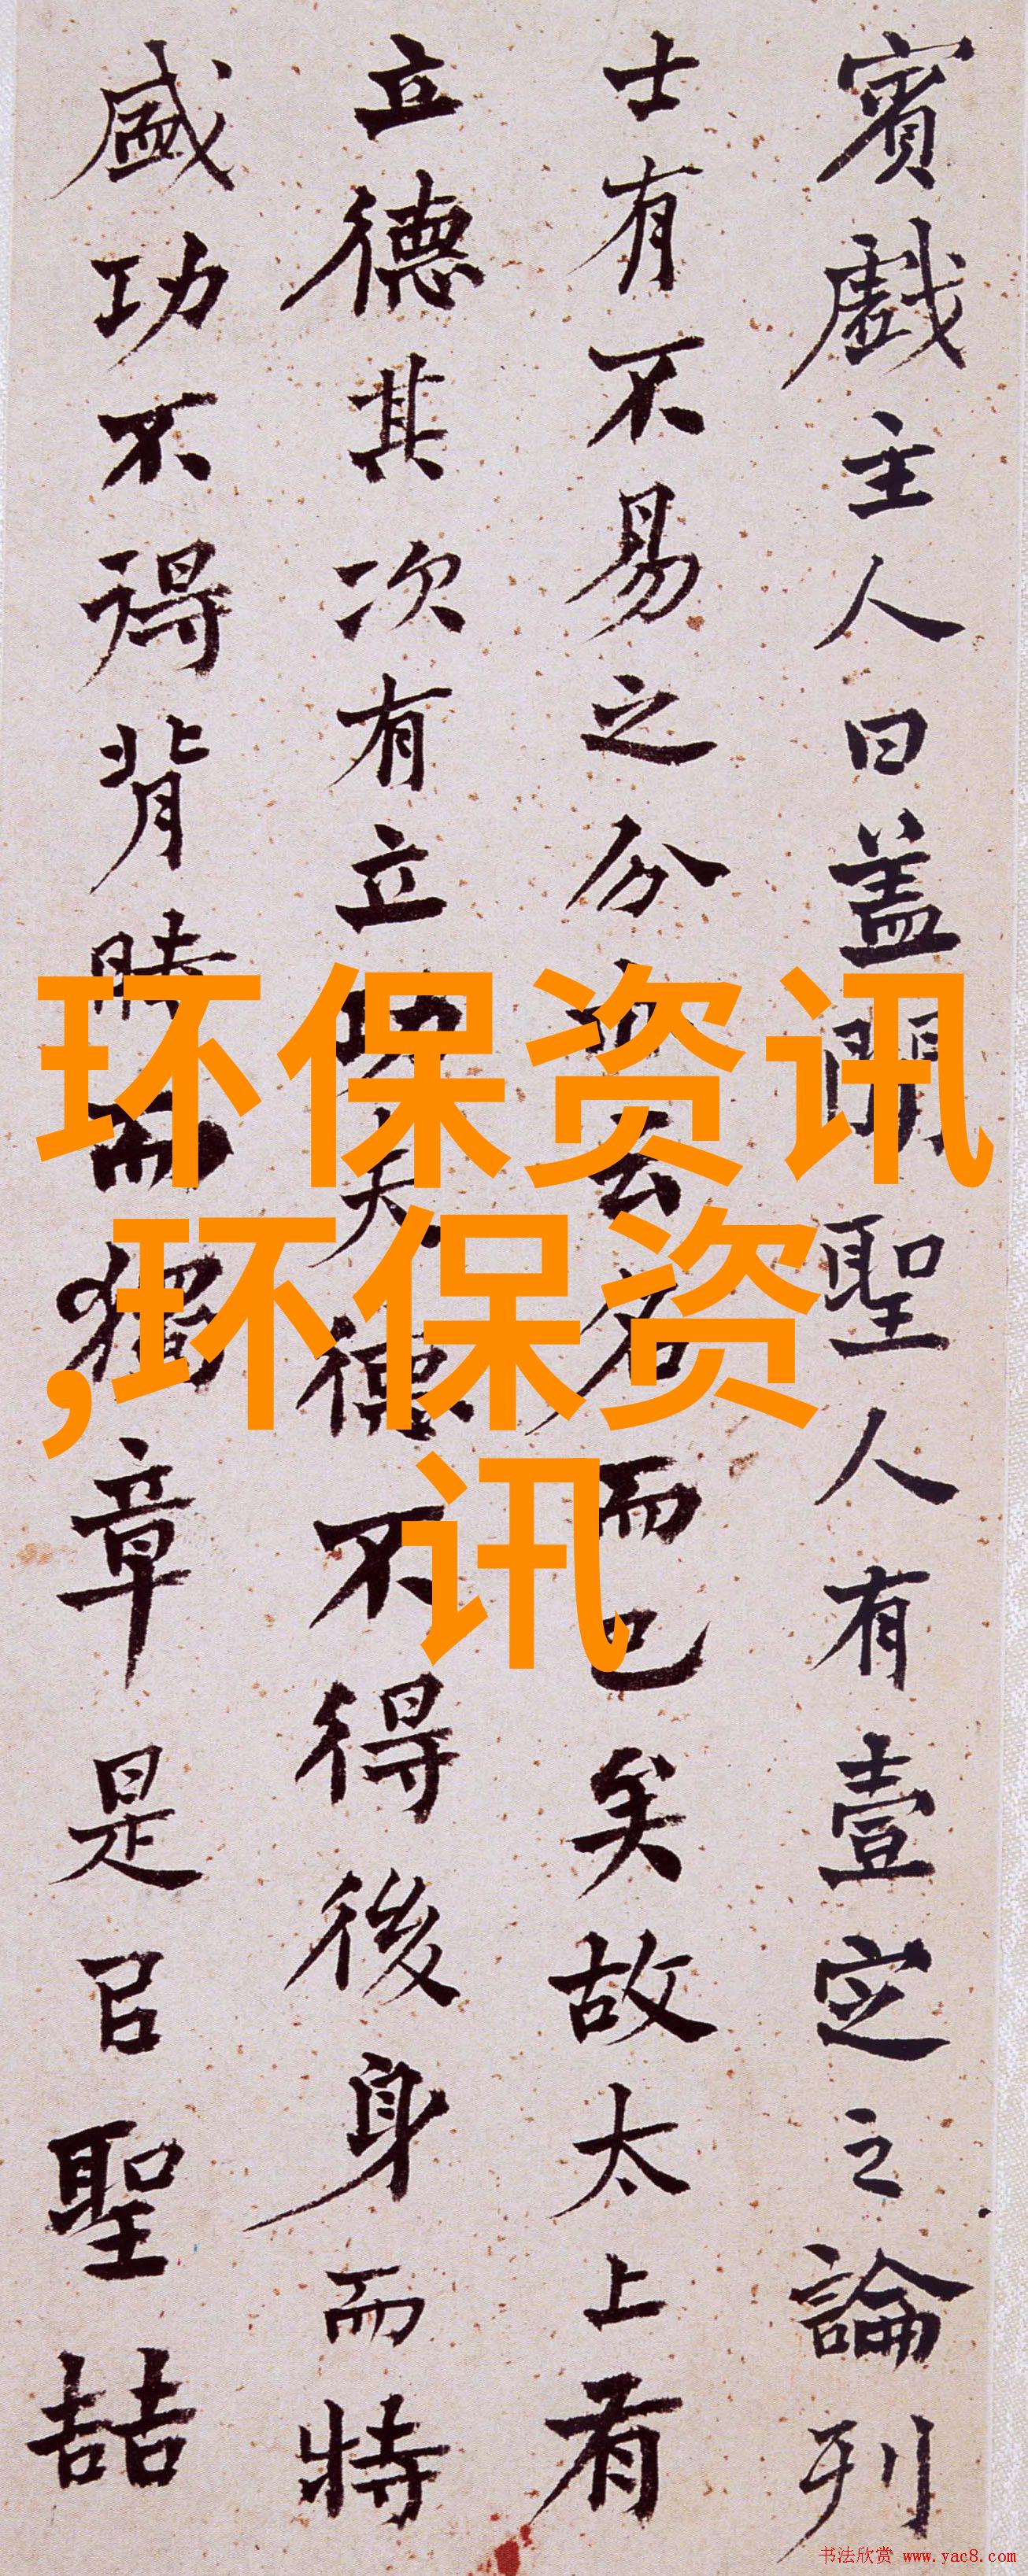 賓戲主人曰盖聞聖人有壹定之論列
士有不易之分　云名而已矣故太上有
立德其次有立功夫德不得後身而特
盛功不得背時而獨章是㠯聖喆
环保资讯
,环保资
讯
书法欣赏 www.yac8.com